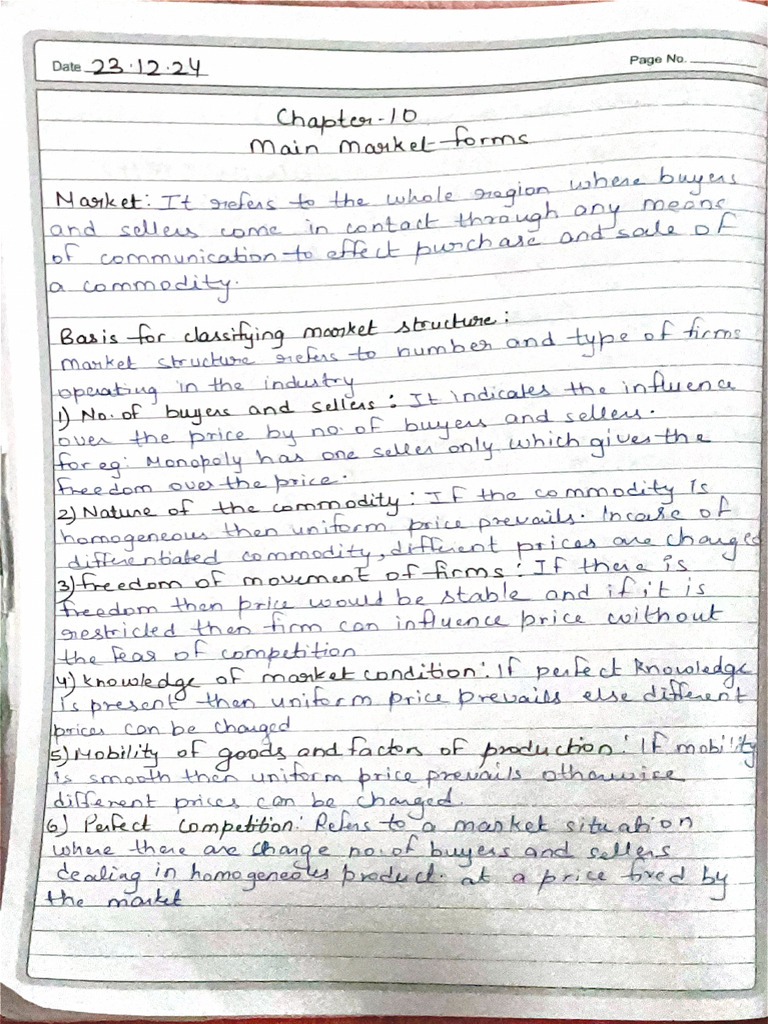 Date 23.12.24
Page No.
Chapter-10
Main Market forms
Market: It refers to the whole region where buyers
and sellers come in contact through any means
of communication to effect purchase and sale of
a commodity.
Basis for classifying market structure:
market structure refers to number and type of firms
operating in the industry
1) No. of buyers and sellers: It indicates the influence
over the price by no. of buyers and sellers.
for eg: Monopoly has one seller only which gives the
freedom over the price.
2) Nature of the commodity: If the commodity is
homogeneous then uniform price prevails. Incase of
differentiated commodity, different prices are charged
3) freedom of movement of firms: If there is
freedom then price would be stable and if it is
restricted then firm can influence price without
the fear of competition
4) knowledge of market condition: If perfect knowledge
is present then uniform price prevails else different
prices can be charged
5) Mobility of goods and factors of production: If mobility
is smooth then uniform price prevails otherwise
different prices can be charged.
6) Perfect competition: Refers to a market situation
where there are change no. of buyers and sellers
dealing in homogeneous product. at a price fixed by
the market